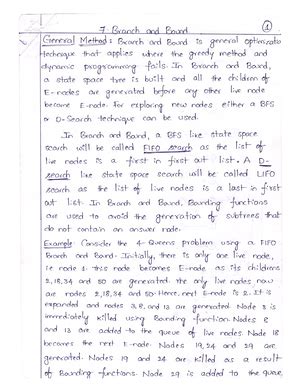 7. Branch and Bound
1
General Method: Branch and Bound is general optimization
technique that applies where the greedy method and
dynamic programming fails. In Branch and Bound,
a state space tree is built and all the children of
E-nodes are generated before any other live node
become E-node. For exploring new nodes either a BFS
or D-Search technique can be used.
In Branch and Bound, a BFS like state space
search will be called FIFO search as the list of
live nodes is a first in first out list. A D-
search like state space search will be called LIFO
search as the list of live nodes is a last in first
out list. In Branch and Bound, Bounding functions
are used to avoid the generation of subtrees that
do not contain an answer node.
Example: Consider the 4-Queens problem using a FIFO
Branch and Bound. Initially, there is only one live node,
i.e node 1. this node becomes E-node as its childrens
2,18,34 and 50 are generated. the only live nodes now
are nodes 2,18,34 and 50. Hence, next E-node is 2. It is
expanded and nodes 3,8, and 13 are generated. Node 3 is
immediately killed using Bounding function. Nodes 8
and 13 are added to the queue of live nodes. Node 18
becomes the next E-node. Nodes 19, 24 and 29 are
generated. Nodes 19 and 24 are killed as a result
of Bounding functions. Node 29 is added to the queue